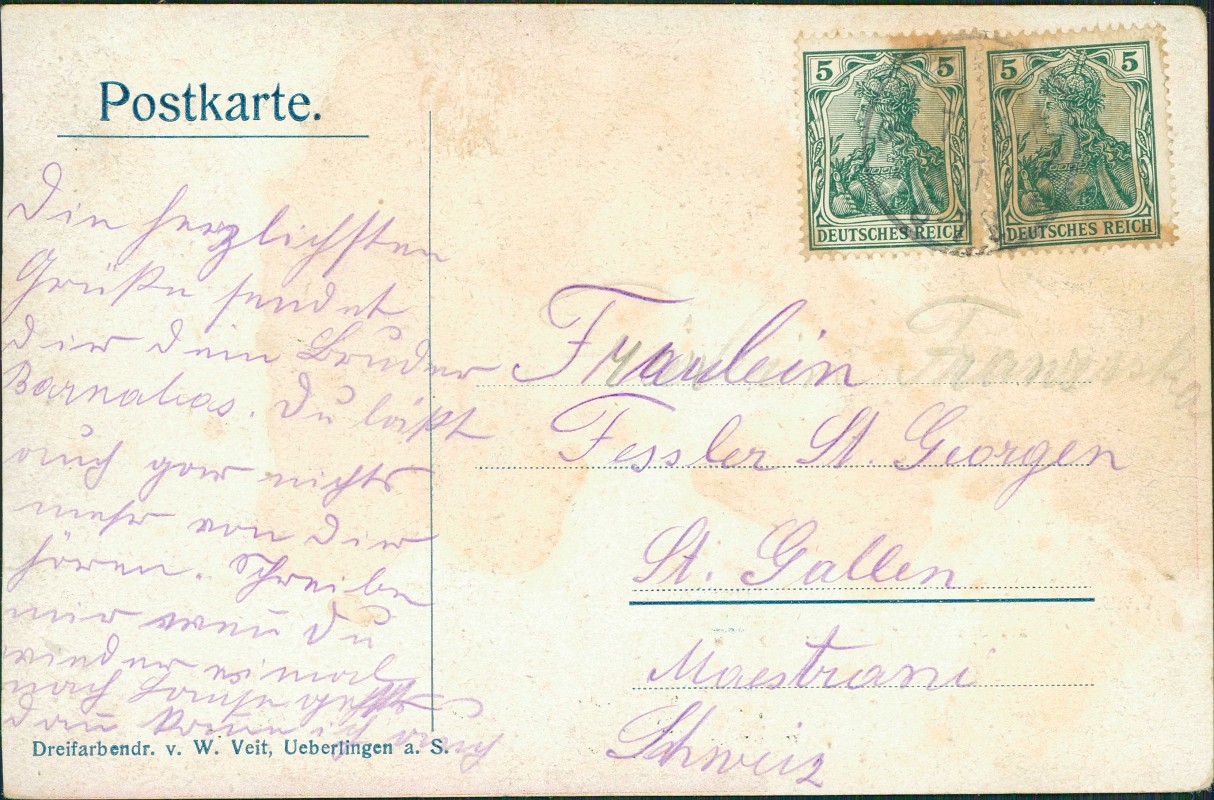 Postkarte.
5 5
DEUTSCHES REICH
5 5
DEUTSCHES REICH
Die herzlichsten
Grüße sendet
dir dein Bruder
Barnabas. Du läßt
auch gar nichts
mehr von dir
hören. Schreibe
mir wen̄ du
wieder einmal
nach Hause gehst
dan̄ kom̄e ich auch
Fräulein Franziska
Fessler St. Georgen
St. Gallen
Maestrani
Schweiz
Dreifarbendr. v. W. Veit, Ueberlingen a. S.